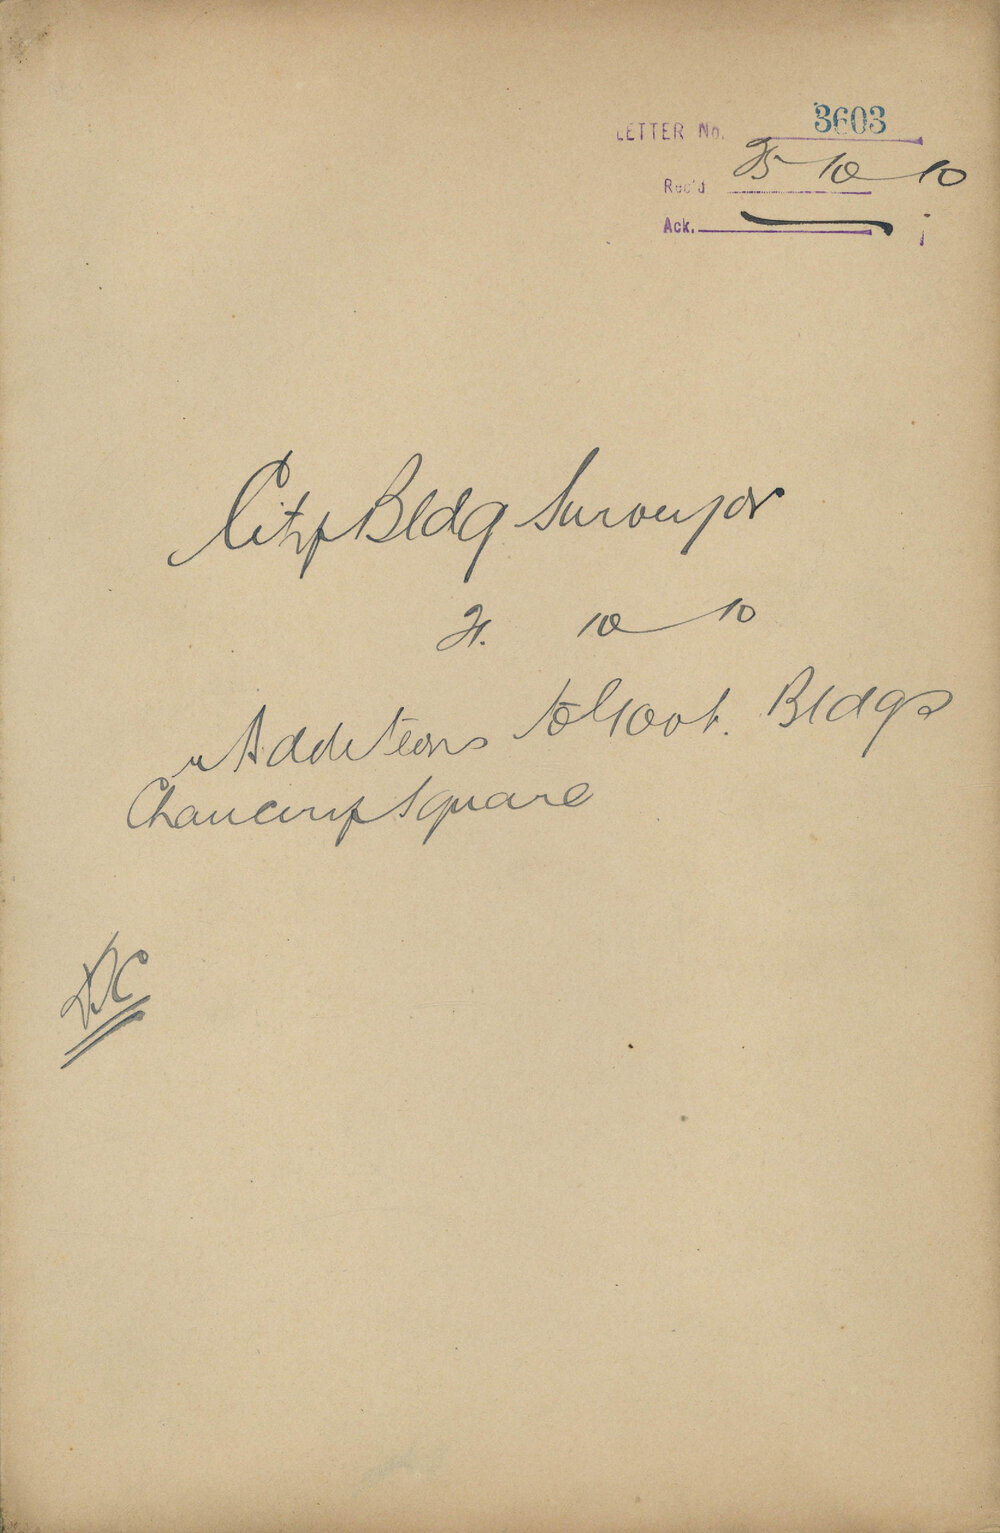 LETTER No. 3603
Rec'd 25 10 10
Ack.
City Bldg Surveyor
21. 10 10
Additions to Govt. Bldgs
Chancery Square